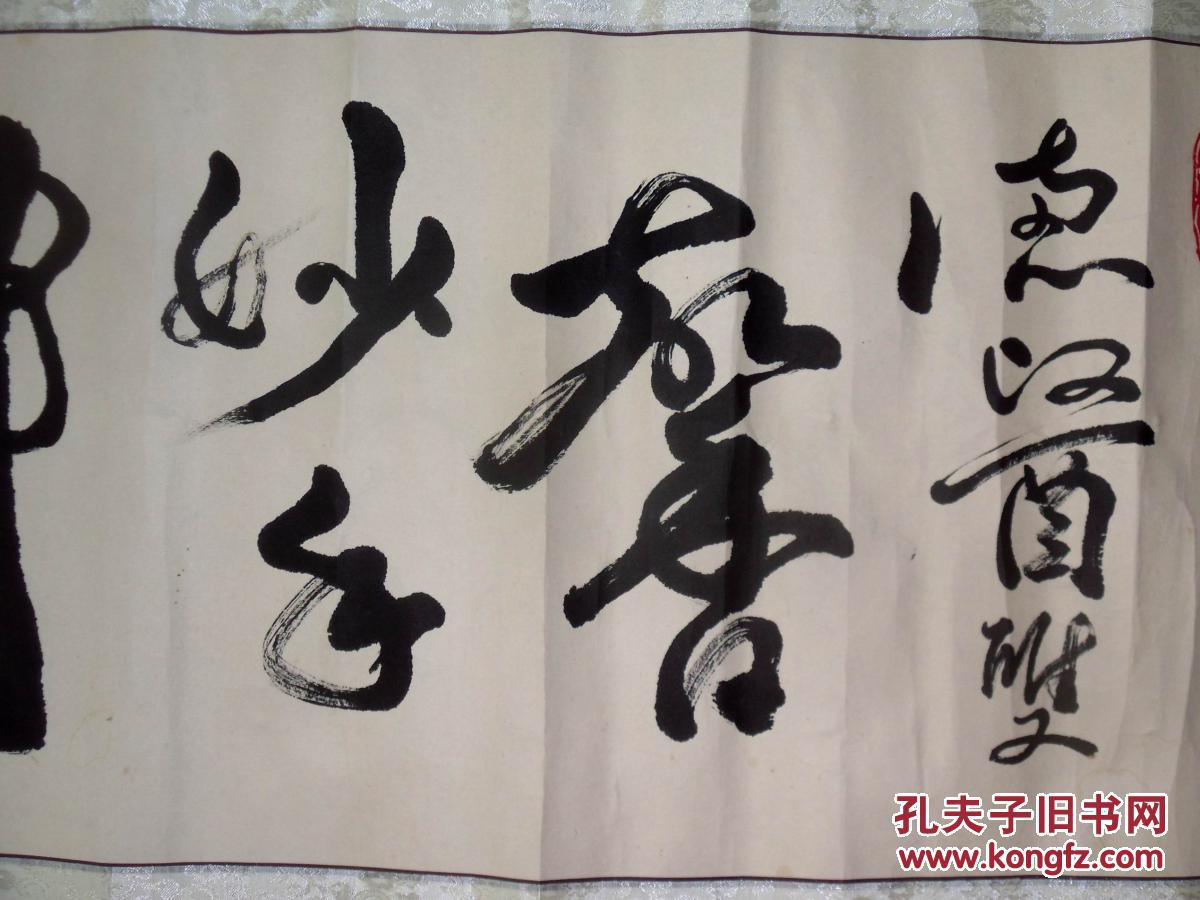 德醫雙
馨
妙手
孔夫子旧书网
www.kongfz.com